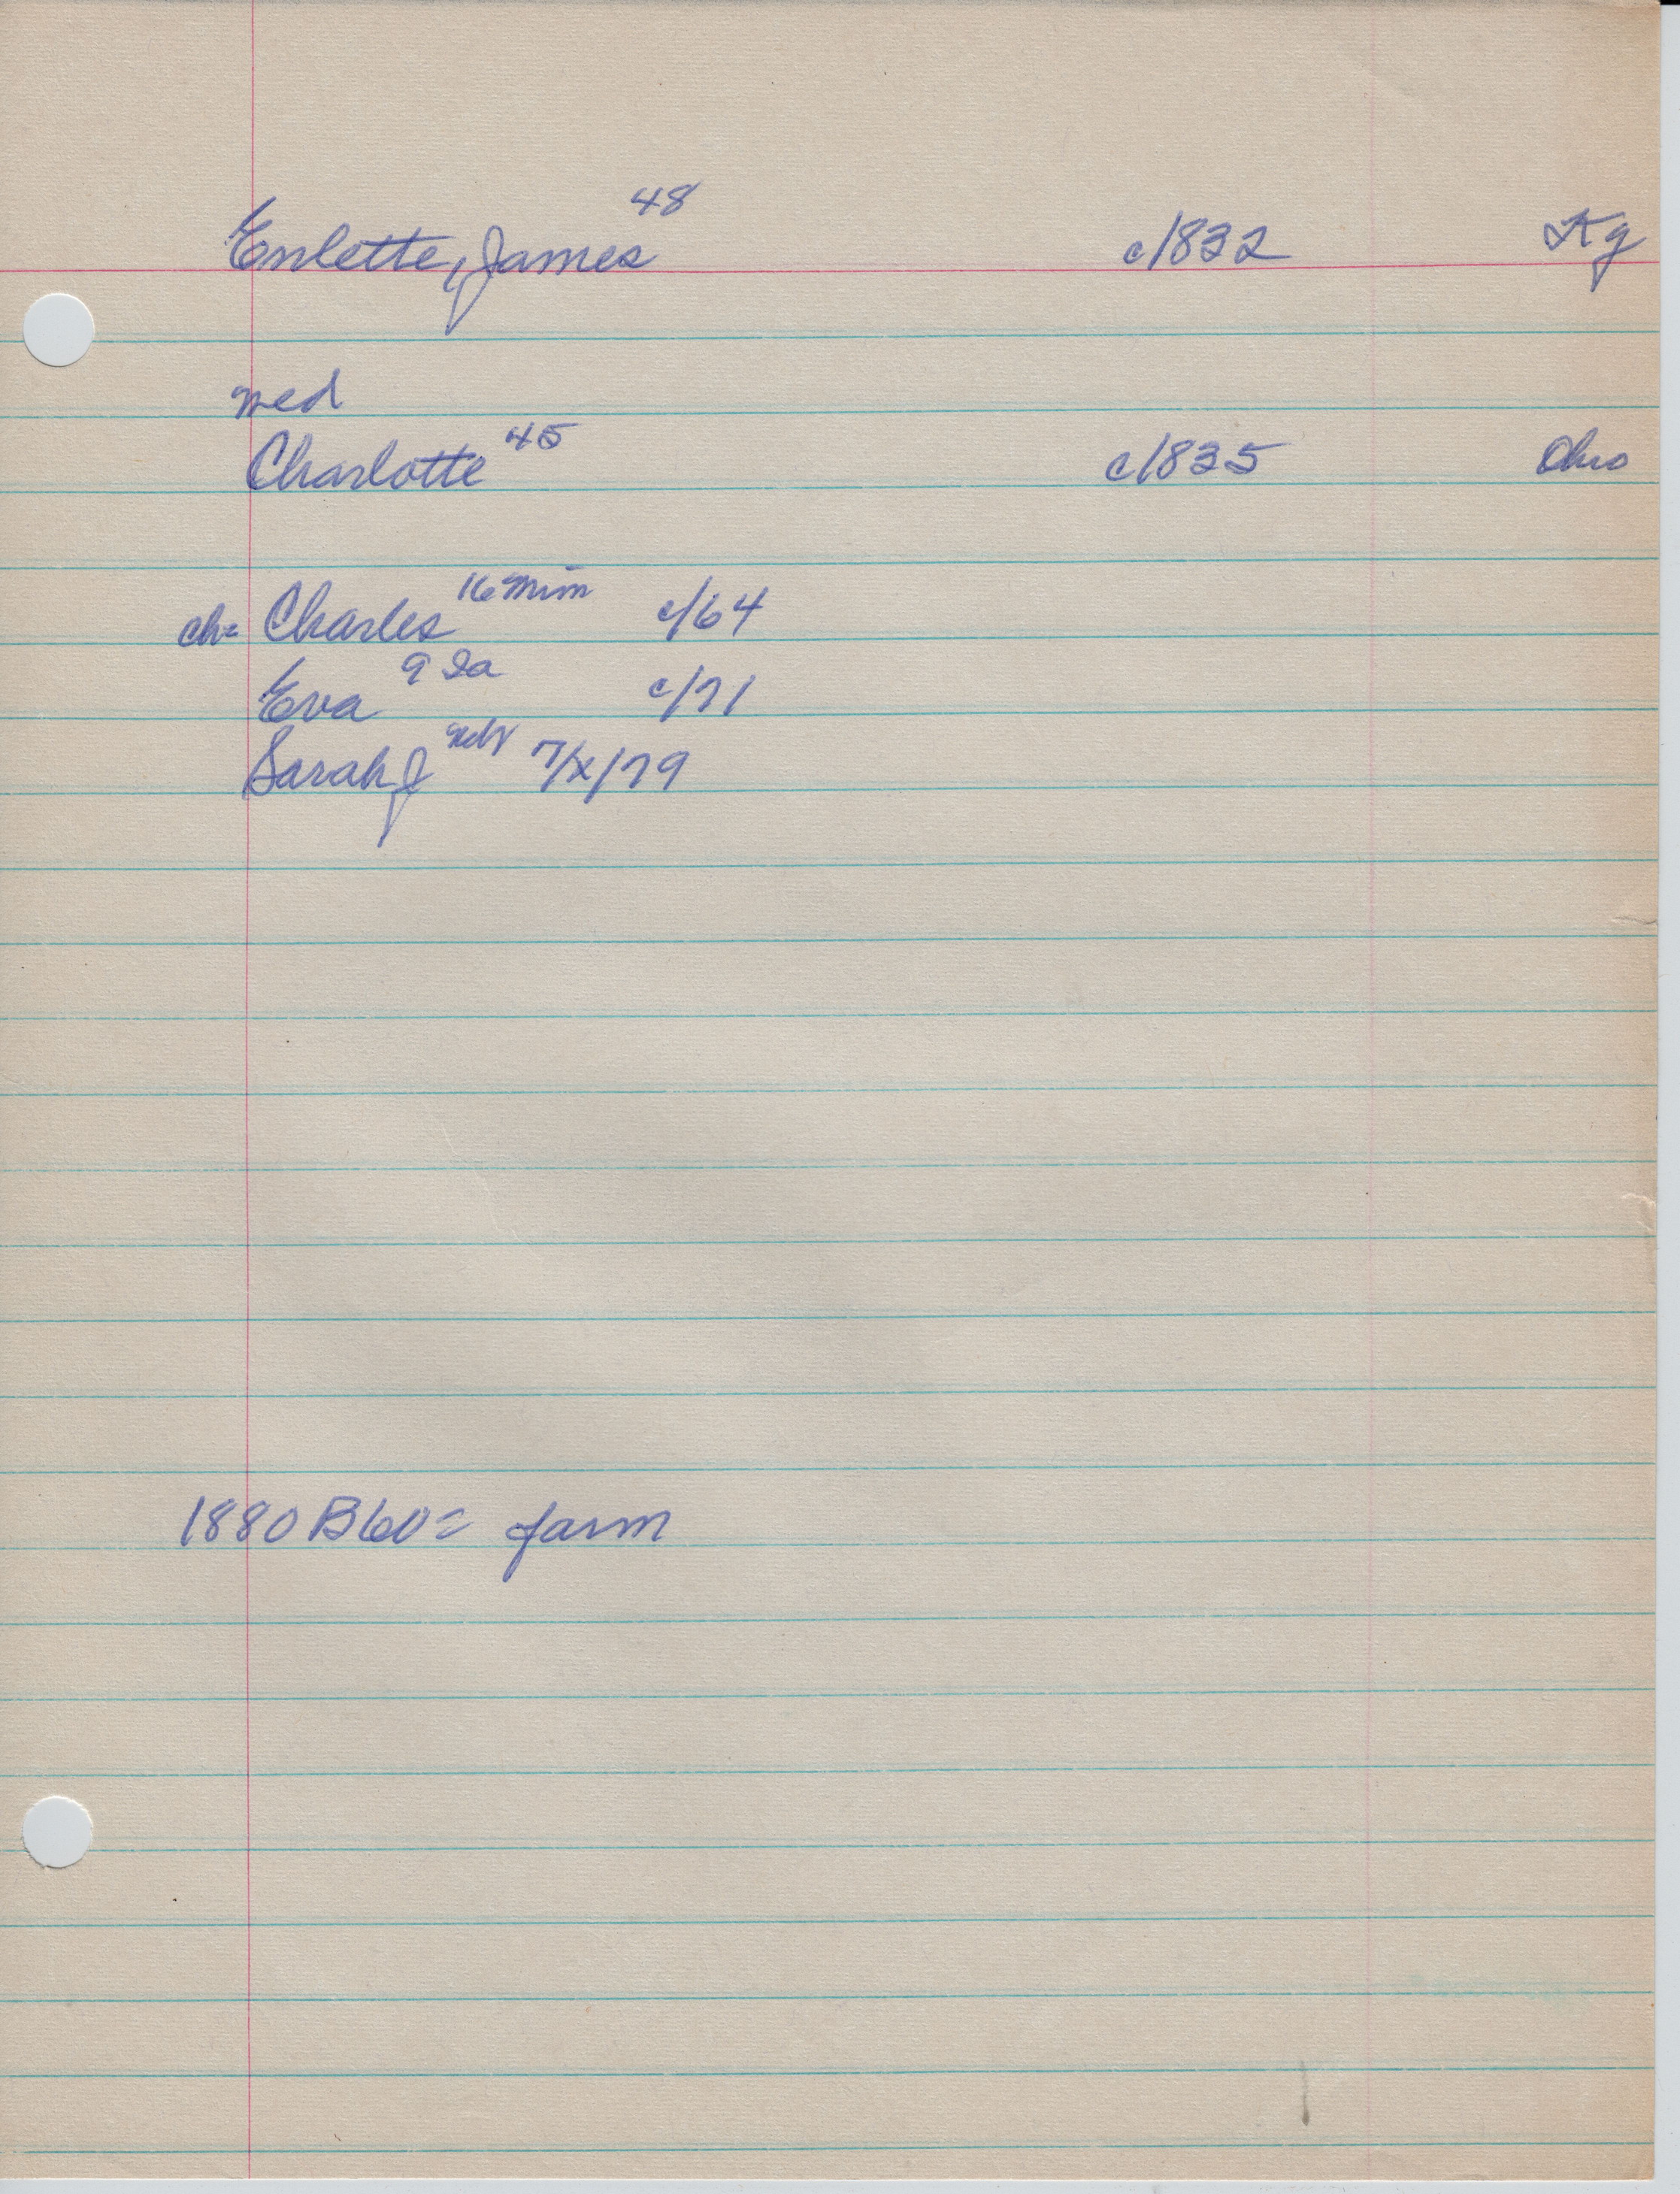 Enlette, James 48 c/832 Ky
med
Charlotte 45 c/835 Ohio
ch= Charles 16 Minn c/64
Eva 9 Ia c/71
Sarah J Neb 7/x/79
1880 B60= farm